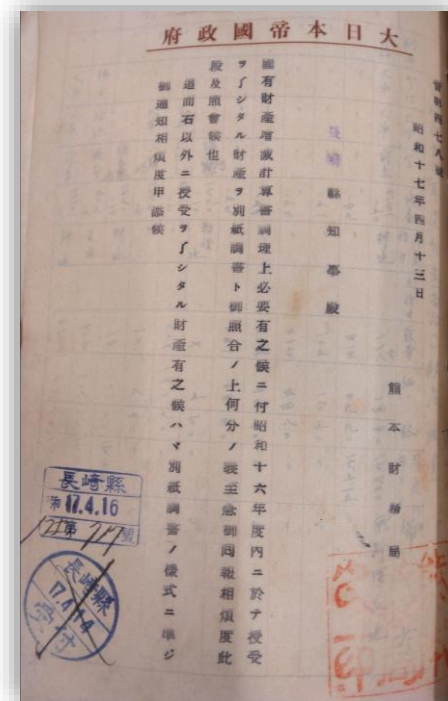 大日本帝國政府
昭和十七年四月十三日
熊本財務局
長崎縣知事殿
國有財産増減計算書調理上必要有之候ニ付昭和十六年度内ニ於テ授受
ヲ了シタル財産ヲ別紙調書ト御照合ノ上何分ノ義至急御囘報相煩度此
段及照會候也
追而右以外ニ授受ヲ了シタル財産有之候ハヾ別紙調書ノ様式ニ準ジ
御通知相煩度申添候
長崎縣
17.4.16
第
號
長崎縣
17.4.14
受付